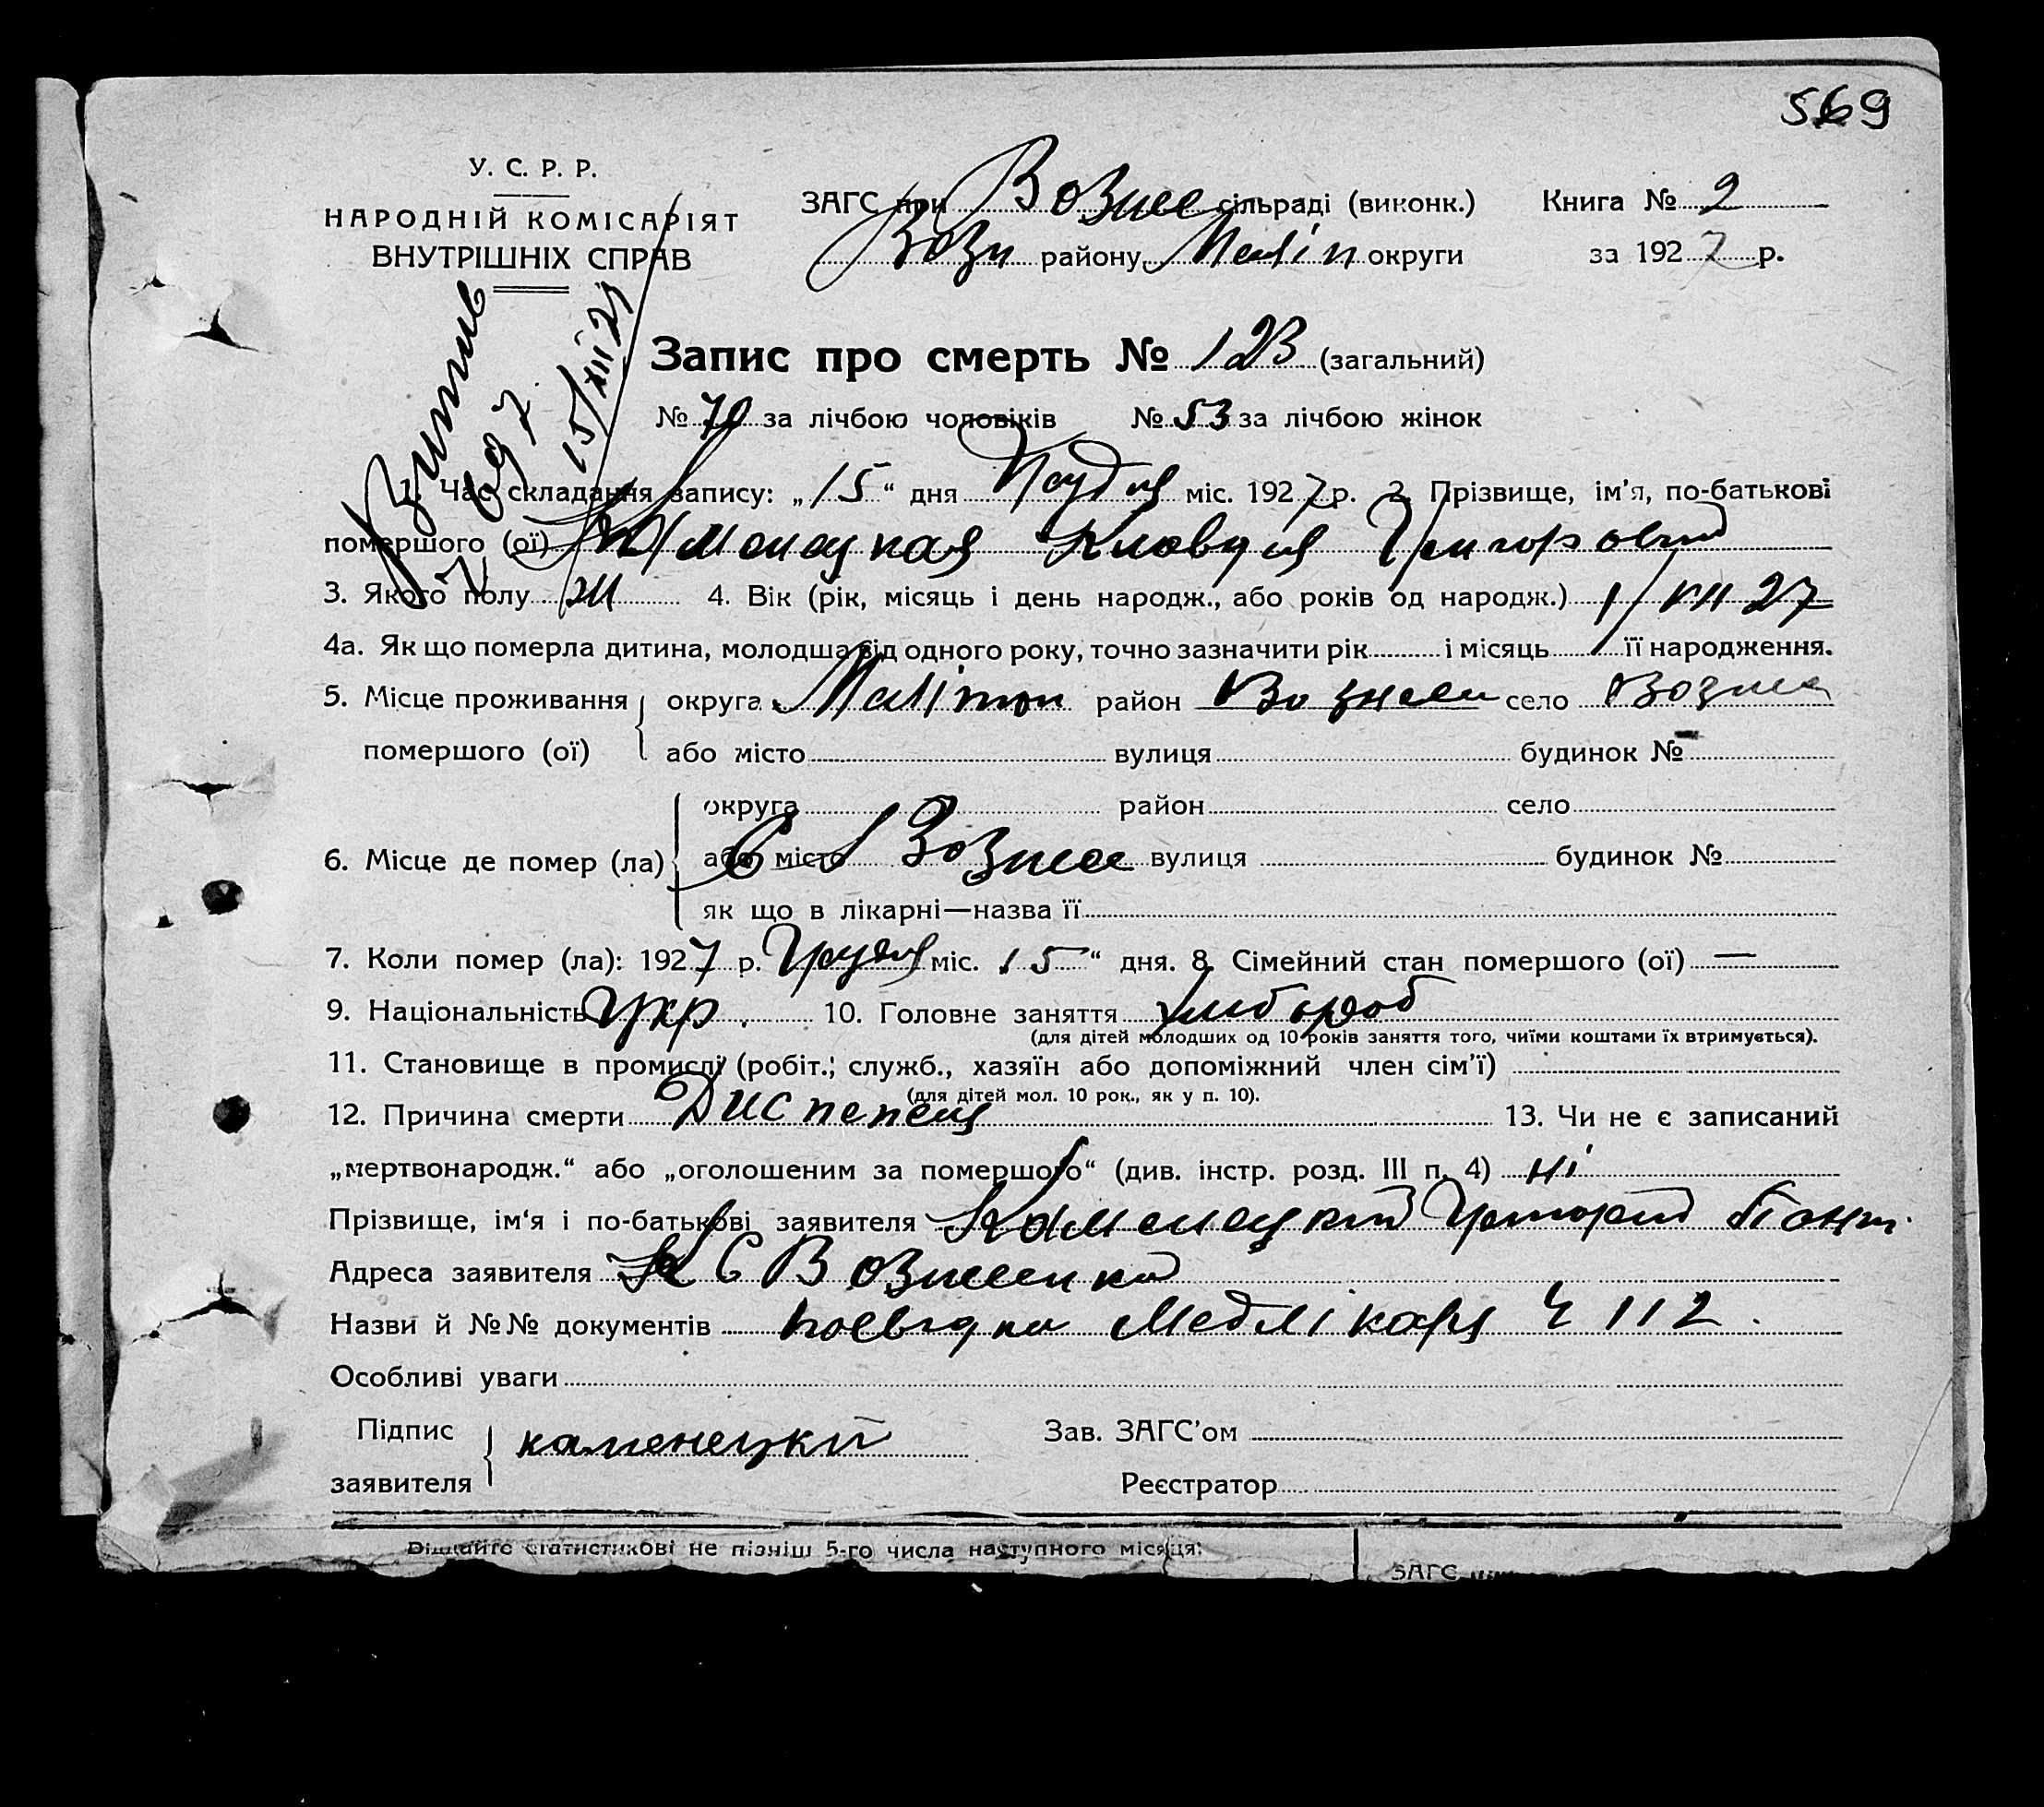 569
У. С. Р. Р.
НАРОДНІЙ КОМІСАРІЯТ
ВНУТРІШНІХ СПРАВ
ЗАГС при Вознес сільраді (виконк.) Книга № 2
Возн району округи за 1927 р.
15/XII 27
Запис про смерть № 123 (загальний)
№ 70 за лічбою чоловіків № 53 за лічбою жінок
1. Час складання запису: „15“ дня Грудня міс. 1927 р. 2. Прізвище, ім'я, по-батькові
помершого (ої) Каменецкая Клавдия Григоровна
3. Якого полу ж 4. Вік (рік, місяць і день народж., або років од народж.) 1/VII 27
4а. Як що померла дитина, молодша від одного року, точно зазначити рік і місяць її народження.
5. Місце проживання округа район Вознесен село Возне
помершого (ої) або місто вулиця будинок №
округа район село
6. Місце де помер (ла) або місто С Вознес вулиця будинок №
як що в лікарні—назва її
7. Коли помер (ла): 1927 р. Грудня міс. 15“ дня. 8. Сімейний стан помершого (ої) —
9. Національність Укр. 10. Головне заняття хлібороб
(для дітей молодших од 10 років заняття того, чиїми коштами їх втримується).
11. Становище в промислі (робіт.; служб., хазяїн або допоміжний член сім'ї)
(для дітей мол. 10 рок., як у п. 10).
12. Причина смерти Диспепсия 13. Чи не є записаний
„мертвонародж.“ або „оголошеним за помершого“ (див. інстр. розд. III п. 4) ні
Прізвище, ім'я і по-батькові заявителя Каменецкий Григорий
Адреса заявителя С Вознесенка
Назви й №№ документів посвідка Медлікаря Ч 112.
Особливі уваги
Підпис каменецкий Зав. ЗАГС'ом
заявителя Реєстратор
Відсилайте статистикові не пізніш 5-го числа наступного місяця:
ЗАГС